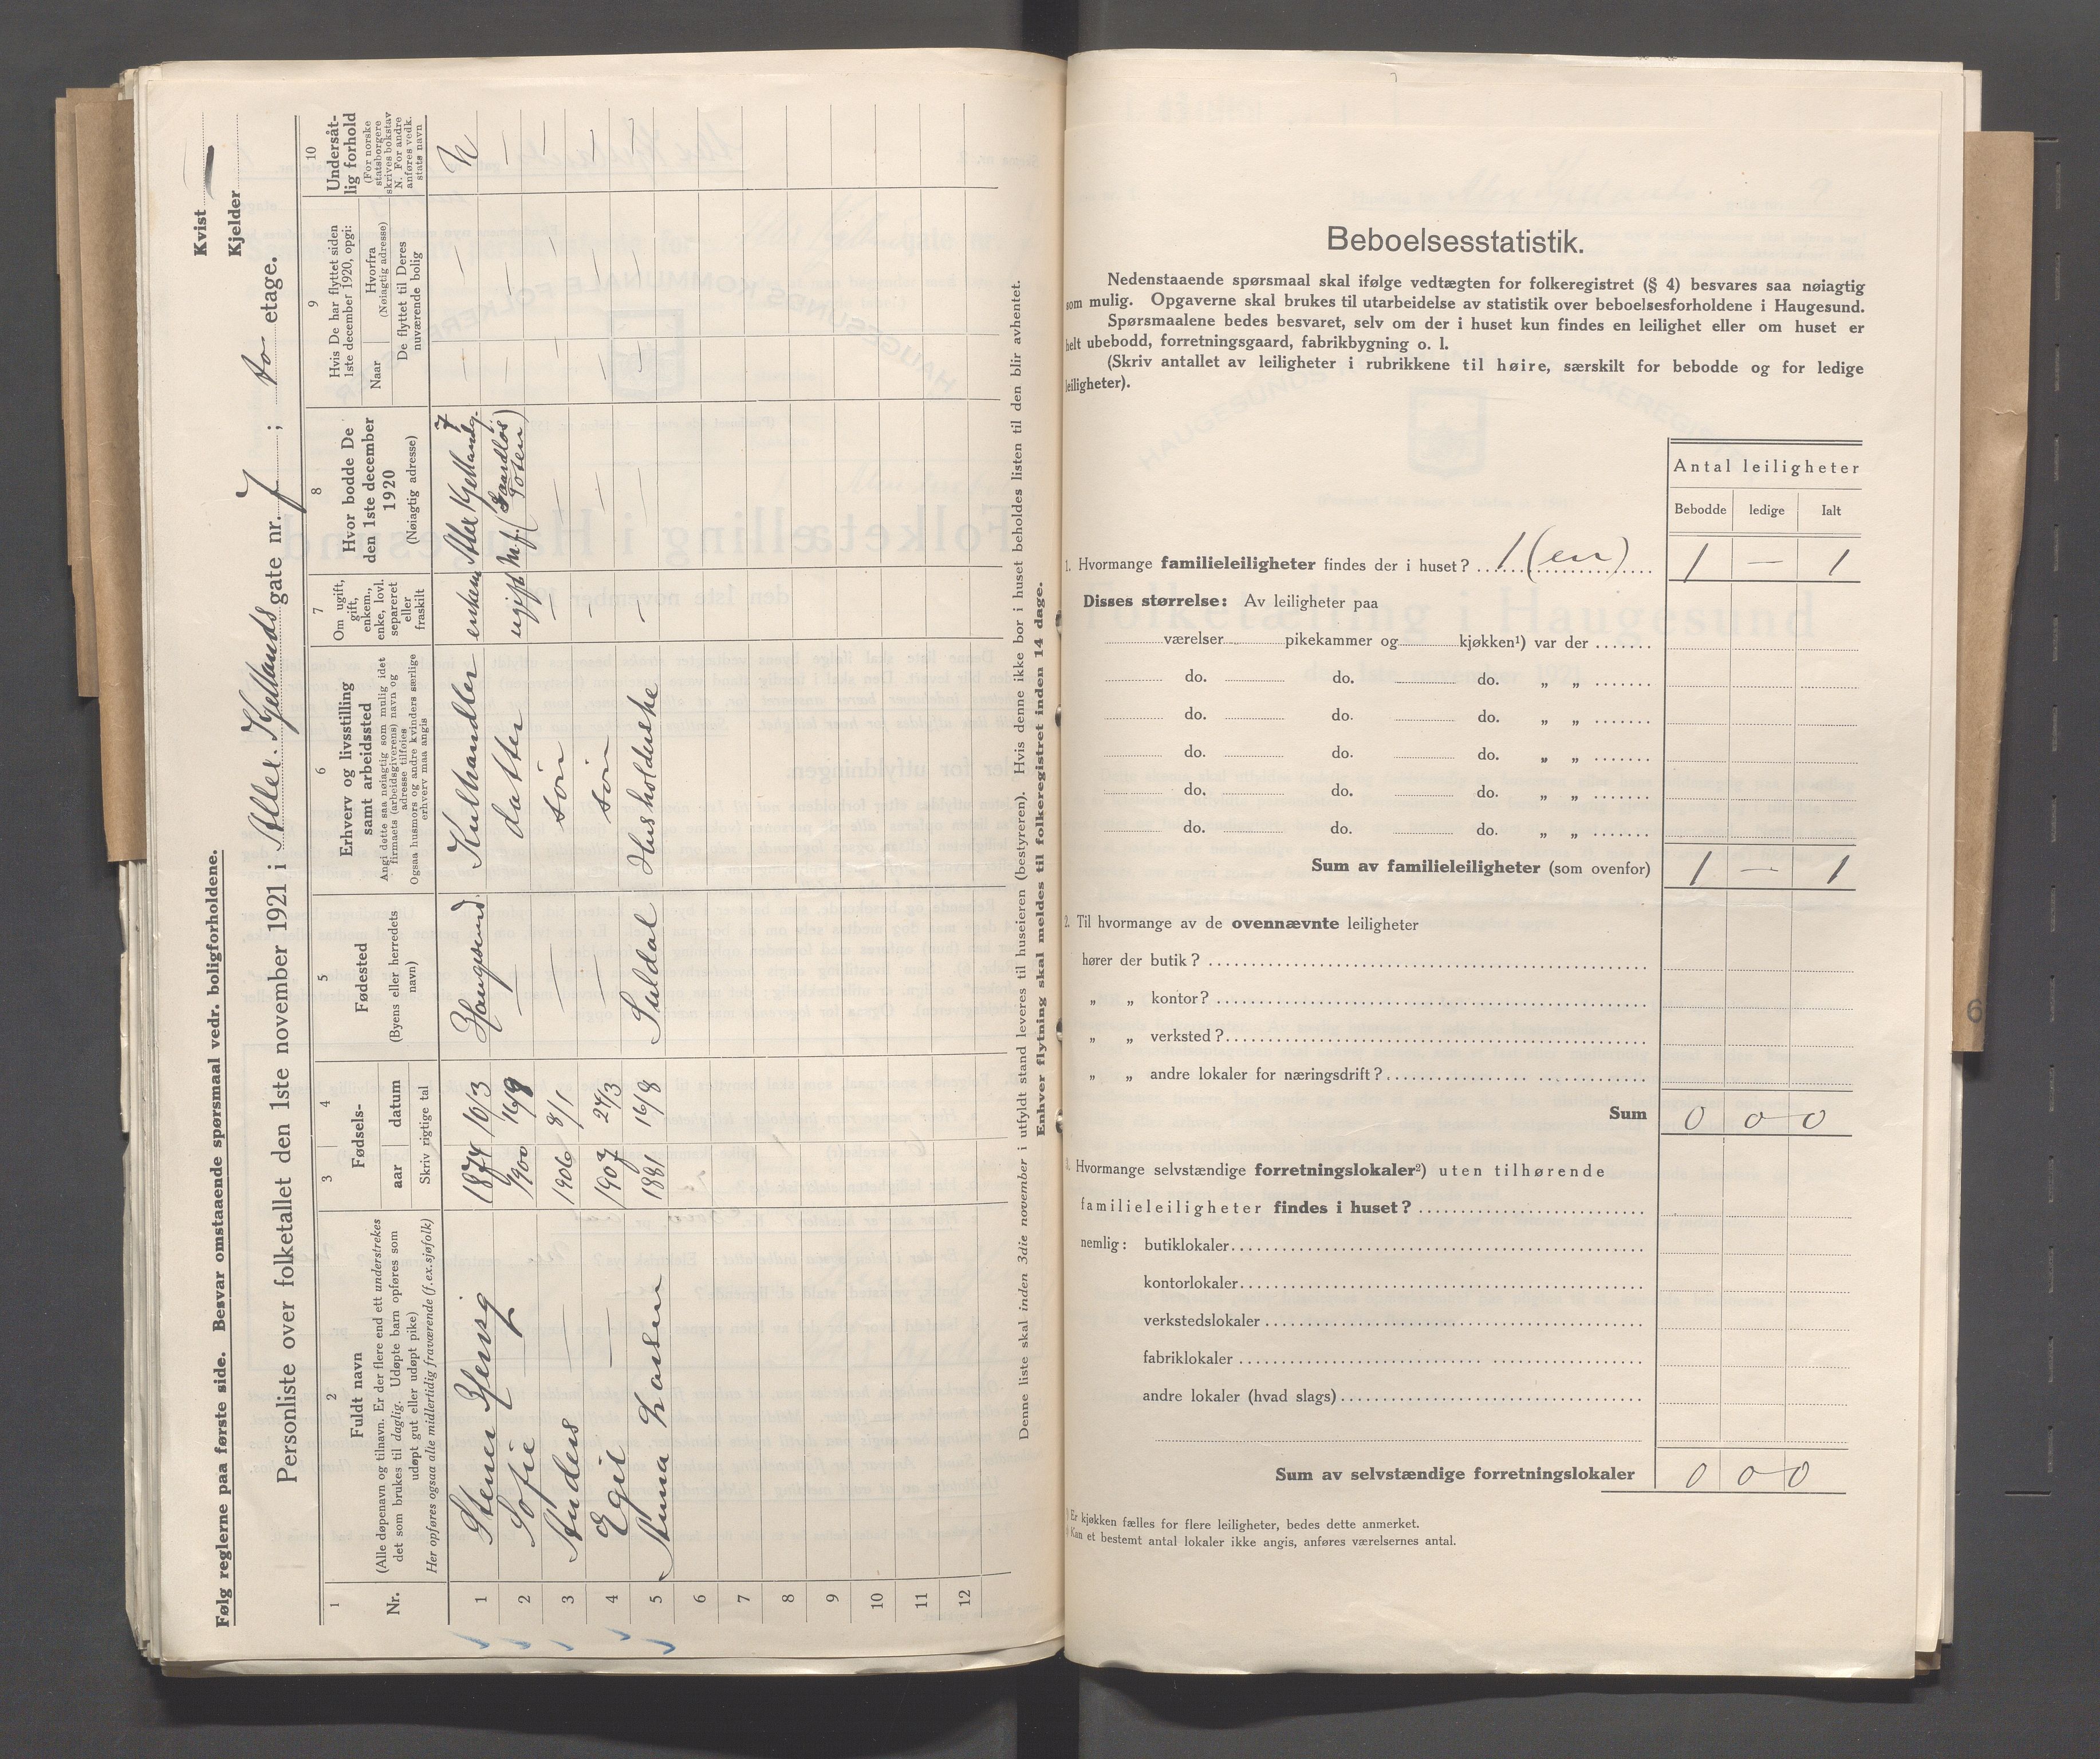 Følg reglerne paa første side. Besvar omstaaende spørsmaal vedr. boligforholdene.
Kvist —
Kjelder
Personliste over folketallet den 1ste november 1921 i Allex. Kjellands gate nr. 7 ; to etage.
1
Nr.
2
Fuldt navn
(Alle døpenavn og tilnavn. Er der flere end ett understrekes
det som brukes til daglig. Udøpte barn opføres som
udøpt gut eller udøpt pike)
Her opføres ogsaa alle midlertidig fraværende (f.ex.sjøfolk)
3 4
Fødsels-
aar datum
Skriv rigtige tal
5
Fødested
(Byens eller herredets
navn)
6
Erhverv og livsstilling
samt arbeidssted
Angi dette saa nøiagtig som mulig idet
firmaets (arbeidsgiverens) navn og
adresse tilføies
Ogsaa husmors og andre kvinders særlige
erhverv maa angis
7
Om ugift,
gift,
enkem.,
enke, lovl.
separeret
eller
fraskilt
8
Hvor bodde De
den 1ste december
1920
(Nøiagtig adresse)
9
Hvis De har flyttet siden
1ste december 1920, opgi:
Naar
Hvorfra
(Nøiagtig adresse)
De flyttet til Deres
nuværende bolig
10
Undersåt-
lig forhold
(For norske
statsborgere
skrives bokstav
N. For andre
anføres vedk.
stats navn
1 Stener Yfersig 1874 10/3 Haugesund Kulhandler enkem Allex Kjellandsg. 7 — — N
2 Sofie — 1900 16/8 — datter ugift — — —
3 Anders — 1906 8/1 — sön — — —
4 Egil — 1907 24/3 — sön — — — — —
5 Anna Larsen 1881 16/8 Suldal Husholderske — — — — —
6
7
8
9
10
11
12
Denne liste skal inden 3die november i utfyldt stand leveres til huseieren (bestyreren). Hvis denne ikke bor i huset beholdes listen til den blir avhentet.
Enhver flytning skal meldes til folkeregistret inden 14 dage.
Beboelsesstatistik.
Nedenstaaende spørsmaal skal ifølge vedtægten for folkeregistret (§ 4) besvares saa nøiagtig
som mulig. Opgaverne skal brukes til utarbeidelse av statistik over beboelsesforholdene i Haugesund.
Spørsmaalene bedes besvaret, selv om der i huset kun findes en leilighet eller om huset er
helt ubebodd, forretningsgaard, fabrikbygning o. l.
(Skriv antallet av leiligheter i rubrikkene til høire, særskilt for bebodde og for ledige
leiligheter).
Antal leiligheter
Bebodde ledige Ialt
1. Hvormange familieleiligheter findes der i huset? 1 (en) 1 — 1
Disses størrelse: Av leiligheter paa
værelser pikekammer og kjøkken¹) var der
do. do. do. „ „
do. do. do. „ „
do. do. do. „ „
do. do. do. „ „
do. do. do. „ „
Sum av familieleiligheter (som ovenfor) 1 — 1
2. Til hvormange av de ovennævnte leiligheter
hører der butik?
„ „ kontor?
„ „ verksted?
„ „ andre lokaler for næringsdrift?
Sum 0 0 0
Hvormange selvstændige forretningslokaler²) uten tilhørende
familieleiligheter findes i huset?
nemlig: butiklokaler
kontorlokaler
verkstedslokaler
fabriklokaler
andre lokaler (hvad slags)
Sum av selvstændige forretningslokaler 0 0 0
Er kjøkken fælles for flere leiligheter, bedes dette anmerket.
Kan et bestemt antal lokaler ikke angis, anføres værelsernes antal.
6